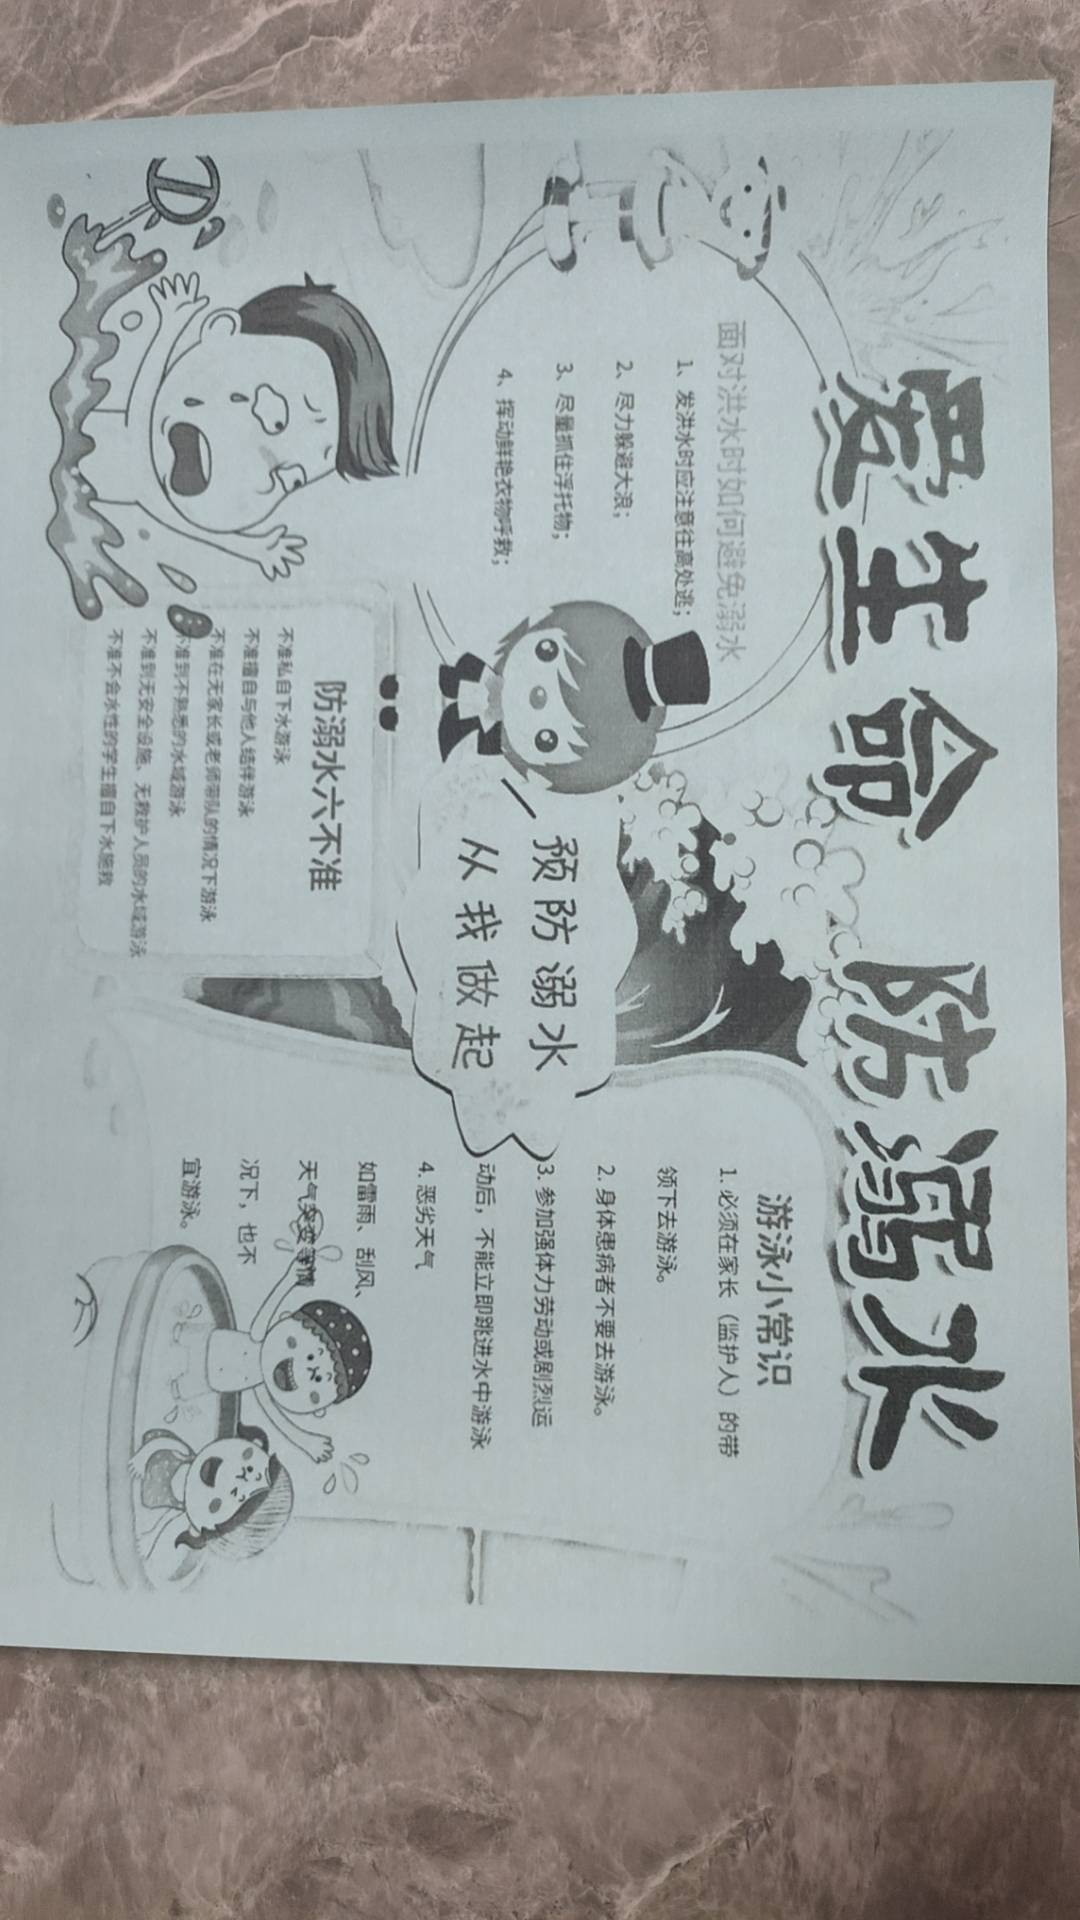 爱生命 防溺水
面对洪水时如何避免溺水
1、发洪水时应注意往高处逃；
2、尽力躲避大浪；
3、尽量抓住浮托物；
4、挥动鲜艳衣物呼救；
预防溺水
从我做起
防溺水六不准
不准私自下水游泳
不准擅自与他人结伴游泳
不准在无家长或老师带队的情况下游泳
不准到不熟悉的水域游泳
不准到无安全设施、无救护人员的水域游泳
不准不会水性的学生擅自下水施救
游泳小常识
1. 必须在家长（监护人）的带
领下去游泳。
2. 身体患病者不要去游泳。
3. 参加强体力劳动或剧烈运
动后，不能立即跳进水中游泳
4. 恶劣天气
如雷雨、刮风、
天气突变等情
况下，也不
宜游泳。